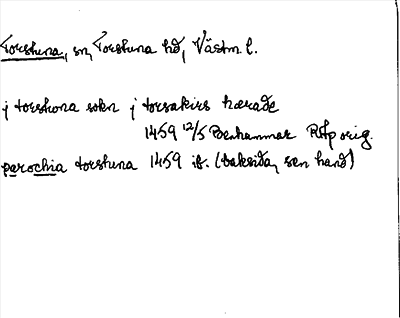 Torstuna, sn, Torstuna hd, Västm. l.
j torstona sokn j torsakirs hærade
1459 12/5 Benhammar RAp orig.
parochia torstuna 1459 ib. (baksida, sen hand)